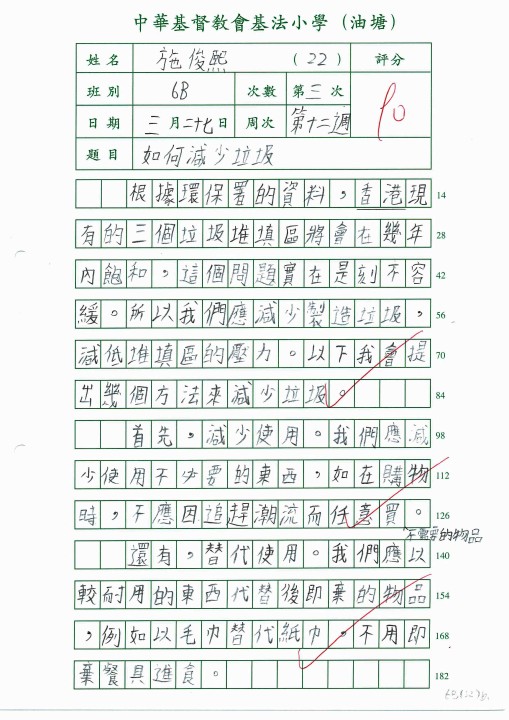 中華基督教會基法小學（油塘）
姓名 施俊熙 （22） 評分
班別 6B 次數 第三次 90
日期 三月二十七日 周次 第十二週
題目 如何減少垃圾
根據環保署的資料，香港現 14
有的三個垃圾堆填區將會在幾年 28
內飽和，這個問題實在是刻不容 42
緩。所以我們應減少製造垃圾， 56
減低堆填區的壓力。以下我會提 70
出幾個方法來減少垃圾。 84
首先，減少使用。我們應減 98
少使用不必要的東西，如在購物 112
時，不應因追趕潮流而任意買。 126
不需要的物品
還有，替代使用。我們應以 140
較耐用的東西代替後即棄的物品 154
，例如以毛巾替代紙巾，不用即 168
棄餐具進食。 182